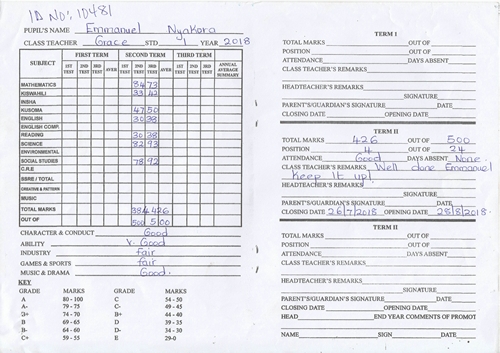 ID No: 10481
PUPIL'S NAME Emmanuel Nyakoro
CLASS TEACHER Grace STD 1 YEAR 2018
FIRST TERM SECOND TERM THIRD TERM
SUBJECT 1ST TEST 2ND TEST 3RD TEST AVER 1ST TEST 2ND TEST 3RD TEST AVER 1ST TEST 2ND TEST 3RD TEST AVER ANNUAL AVERAGE SUMMARY
MATHEMATICS 84 73
KISWAHILI 33 42
INSHA
KUSOMA 47 50
ENGLISH 30 38
ENGLISH COMP.
READING 30 38
SCIENCE 82 93
ENVIRONMENTAL
SOCIAL STUDIES 78 92
C.R.E
BSRE / TOTAL
CREATIVE & PATTERN
MUSIC
TOTAL MARKS 384 426
OUT OF 500 500
CHARACTER & CONDUCT Good
ABILITY V. Good
INDUSTRY fair
GAMES & SPORTS fair
MUSIC & DRAMA Good.
KEY
GRADE MARKS GRADE MARKS
A 80 - 100 C 54 - 50
A- 79 - 75 C- 49 - 45
B+ 74 - 70 B+ 44 - 40
B 69 - 65 D 39 - 35
B- 64 - 60 D- 34 - 30
C+ 59 - 55 E 29-0
TERM I
TOTAL MARKS OUT OF
POSITION OUT OF
ATTENDANCE DAYS ABSENT
CLASS TEACHER'S REMARKS
HEADTEACHER'S REMARKS
SIGNATURE
PARENT'S/GUARDIAN'S SIGNATURE DATE
CLOSING DATE OPENING DATE
TERM II
TOTAL MARKS 426 OUT OF 500
POSITION 4 OUT OF 24
ATTENDANCE Good DAYS ABSENT None
CLASS TEACHER'S REMARKS Well done Emmanuel
Keep It up!
HEADTEACHER'S REMARKS
SIGNATURE
PARENT'S/GUARDIAN'S SIGNATURE DATE
CLOSING DATE 26/7/2018 OPENING DATE 28/8/2018
TERM II
TOTAL MARKS OUT OF
POSITION OUT OF
ATTENDANCE DAYS ABSENT
CLASS TEACHER'S REMARKS
HEADTEACHER'S REMARKS
SIGNATURE
PARENT'S/GUARDIAN'S SIGNATURE DATE
CLOSING DATE OPENING DATE
HEAD END YEAR COMMENTS OF PROMOT
NAME SIGN DATE